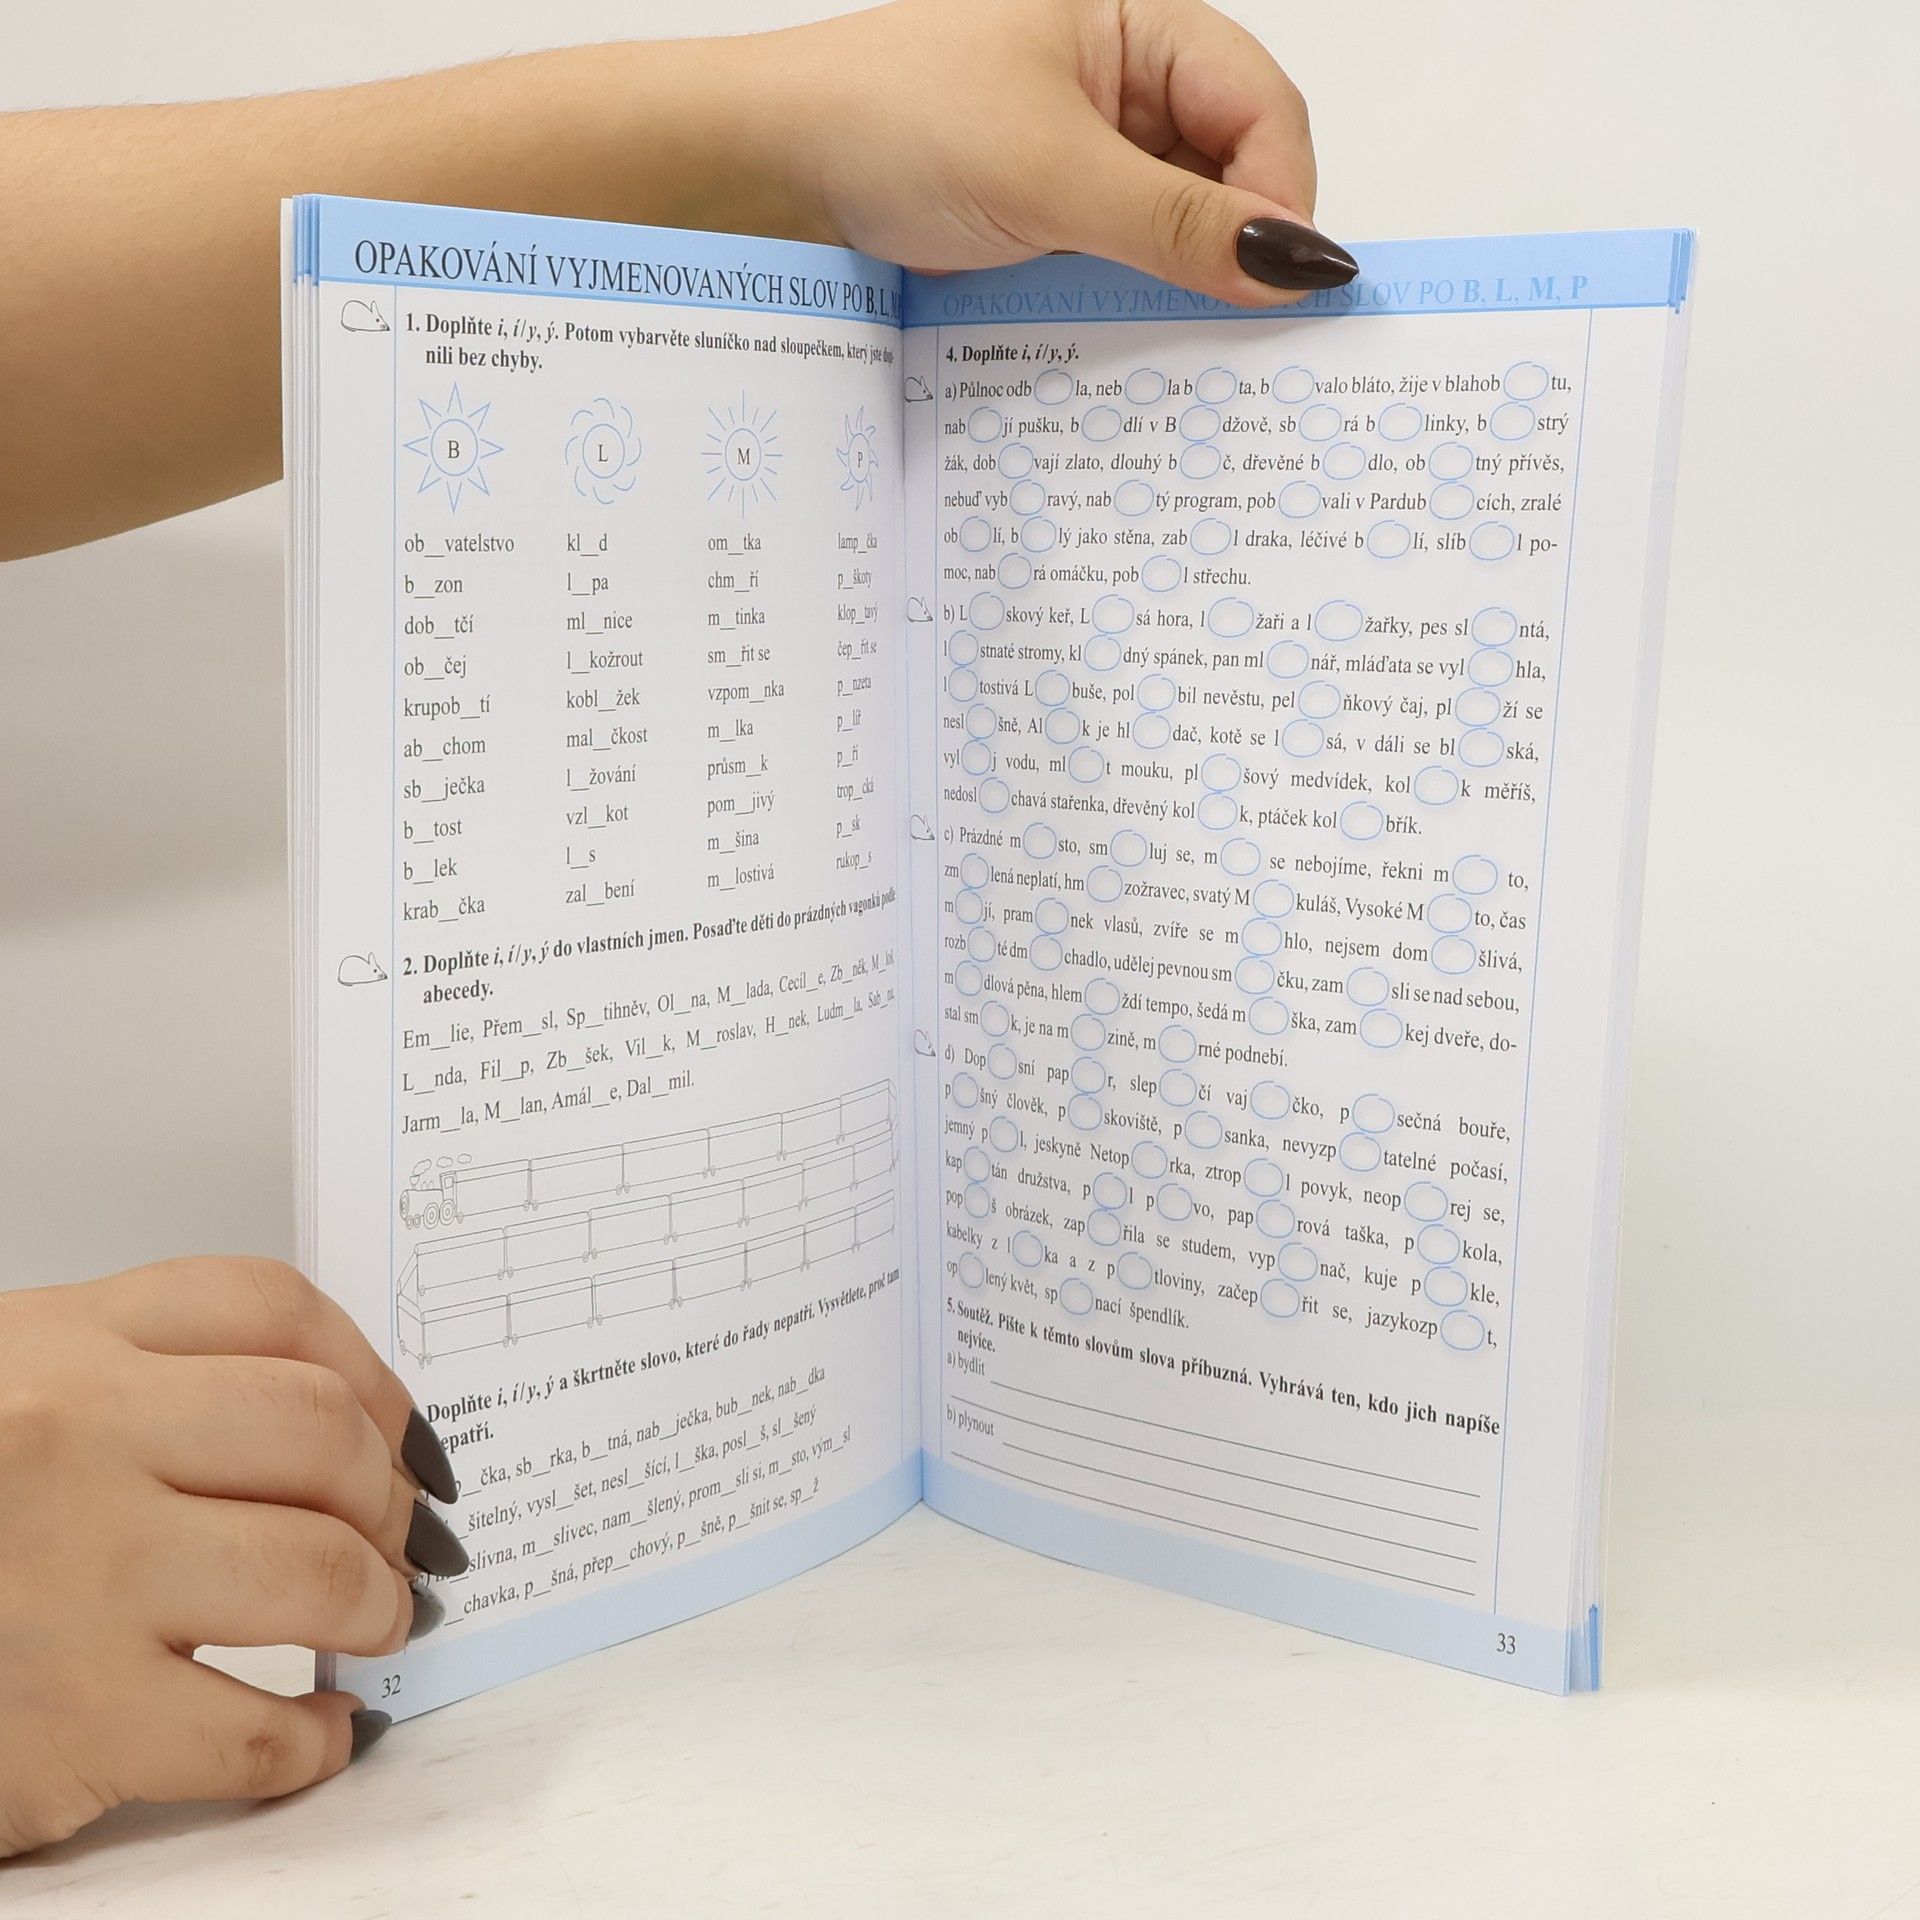 OPAKOVÁNÍ VYJMENOVANÝCH SLOV PO B, L, M
1. Doplňte i, í/y, ý. Potom vybarvěte sluníčko nad sloupečkem, který jste
nili bez chyby.
B L M P
ob__vatelstvo kl__d om__tka lamp__čka
b__zon l__pa chm__ří p__škoty
dob__tčí ml__nice m__tinka klop__tavý
ob__čej l__kožrout sm__řit se čep__řit se
krupob__tí kobl__žek vzpom__nka p__nzeta
ab__chom mal__čkost m__lka p__líř
sb__ječka l__žování průsm__k p__ří
b__tost vzl__kot pom__jivý trop__cká
b__lek l__s m__šina p__sk
krab__čka zal__bení m__lostivá rukop__s
2. Doplňte i, í/y, ý do vlastních jmen. Posaďte děti do prázdných vagonků podle
abecedy.
Em__lie, Přem__sl, Sp__tihněv, Ol__na, M__lada, Cecíl__e, Zb__něk, M__loš,
L__nda, Fil__p, Zb__šek, Vil__k, M__roslav, H__nek, Ludm__la, Sab__na,
Jarm__la, M__lan, Amál__e, Dal__mil.
Doplňte i, í/y, ý a škrtněte slovo, které do řady nepatří. Vysvětlete, proč tam
epatří.
__čka, sb__rka, b__tná, nab__ječka, bub__nek, nab__dka
__šitelný, vysl__šet, nesl__šící, l__ška, posl__š, sl__šený
slivna, m__slivec, nam__šlený, prom__slí si, m__sto, vým__sl
__chavka, p__šná, přep__chový, p__šně, p__šnit se, sp__ž
32
OPAKOVÁNÍ VYJMENOVANÝCH SLOV PO B, L, M, P
4. Doplňte i, í/y, ý.
a) Půlnoc odb__la, neb__la b__ta, b__valo bláto, žije v blahob__tu,
nab__jí pušku, b__dlí v B__džově, sb__rá b__linky, b__strý
žák, dob__vají zlato, dlouhý b__č, dřevěné b__dlo, ob__tný přívěs,
nebuď vyb__ravý, nab__tý program, pob__vali v Pardub__cích, zralé
ob__lí, b__lý jako stěna, zab__l draka, léčivé b__lí, slíb__l po-
moc, nab__rá omáčku, pob__l střechu.
b) L__skový keř, L__sá hora, l__žaři a l__žařky, pes sl__ntá,
l__stnaté stromy, kl__dný spánek, pan ml__nář, mláďata se vyl__hla,
l__tostivá L__buše, pol__bil nevěstu, pel__ňkový čaj, pl__ží se
nesl__šně, Al__k je hl__dač, kotě se l__sá, v dáli se bl__ská,
vyl__j vodu, ml__t mouku, pl__šový medvídek, kol__k měříš,
nedosl__chavá stařenka, dřevěný kol__k, ptáček kol__břík.
c) Prázdné m__sto, sm__luj se, m__ se nebojíme, řekni m__ to,
zm__lená neplatí, hm__zožravec, svatý M__kuláš, Vysoké M__to, čas
m__jí, pram__nek vlasů, zvíře se m__hlo, nejsem dom__šlivá,
rozb__té dm__chadlo, udělej pevnou sm__čku, zam__sli se nad sebou,
m__dlová pěna, hlem__ždí tempo, šedá m__ška, zam__kej dveře, do-
stal sm__k, je na m__zině, m__rné podnebí.
d) Dop__sní pap__r, slep__čí vaj__čko, p__sečná bouře,
p__šný člověk, p__skoviště, p__sanka, nevyzp__tatelné počasí,
jemný p__l, jeskyně Netop__rka, ztrop__l povyk, neop__rej se,
kap__tán družstva, p__l p__vo, pap__rová taška, p__kola,
pop__š obrázek, zap__řila se studem, vyp__nač, kuje p__kle,
kabelky z l__ka a z p__tloviny, začep__řit se, jazykozp__t,
op__lený květ, sp__nací špendlík.
5. Soutěž. Pište k těmto slovům slova příbuzná. Vyhrává ten, kdo jich napíše
nejvíce.
a) bydlit
b) plynout
33